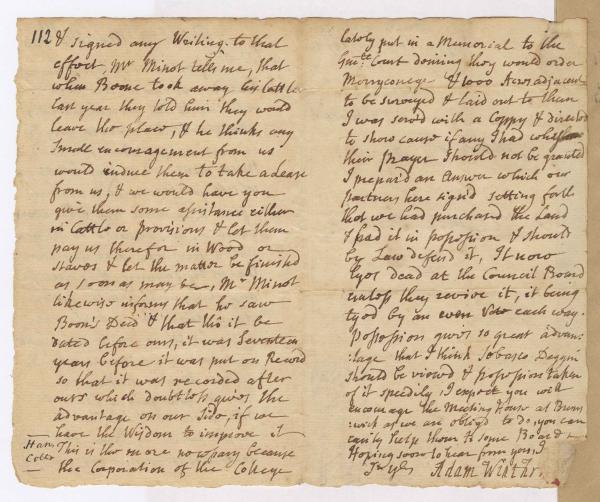 112 & signed any Writing to that
effect, Mr Minot tells me, that
when Boone took away his Cattle
last year they told him they would
leave the place, & he thinks any
Small encouragement from us
would induce them to take a Lease
from us, & we would have you
give them some assistance either
in Cattle or provisions & let them
pay us therefor in Wood or
Staves & let the matter be finished
as soon as may be, Mr Minot
likewise informs that he saw
Boon's Deed & that tho it be
dated before ours, it was Seventeen
years before it was put on Record
so that it was recorded after
ours which doubtless gives the
advantage on our Side, if we
have the Wisdom to improve it
This is the more necessary because
the Corporation of the College
Harv
Colle
lately put in a Memorial to the
Court desiring they would order
Merryconege & 1000 Acres adjacent
to be surveyed & laid out to them
I was servd with a Coppy & directed
to show cause if any I had why
their prayer Should not be granted
I prepar'd an answer which our
partners here sign'd setting forth
that we had purchased the Land
& had it in possession & should
by Law defend it, It now
lyes dead at the Council Board
unless they revive it, it being
tyed by an even Vote each way.
Possession gives so great advan
:tage that I think Sebasco Deggin
should be viewed & possession taken
of it speedily I expect you will
encourage the Meeting House at Bruns
:wick as we are obligd to do, you can
easily help them to some Boards
Hoping soon to hear from you, I
Adam Winthr